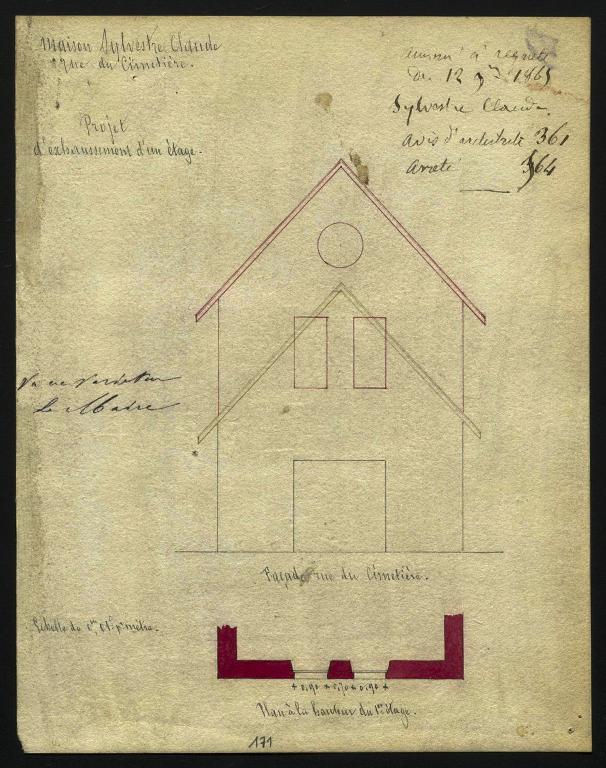 Maison Sylvestre Claude
27 rue du Cimetière.
Projet
d'exhaussement d'un étage.
à requête
du 12 1865
Sylvestre Claude
avis d'architecte 361
arrêté 364
Le Maire
Façade rue du Cimetière.
Echelle de 0m,01c pr mètre.
0,90 0,70 0,90
Plan à la hauteur du 1er étage.
171